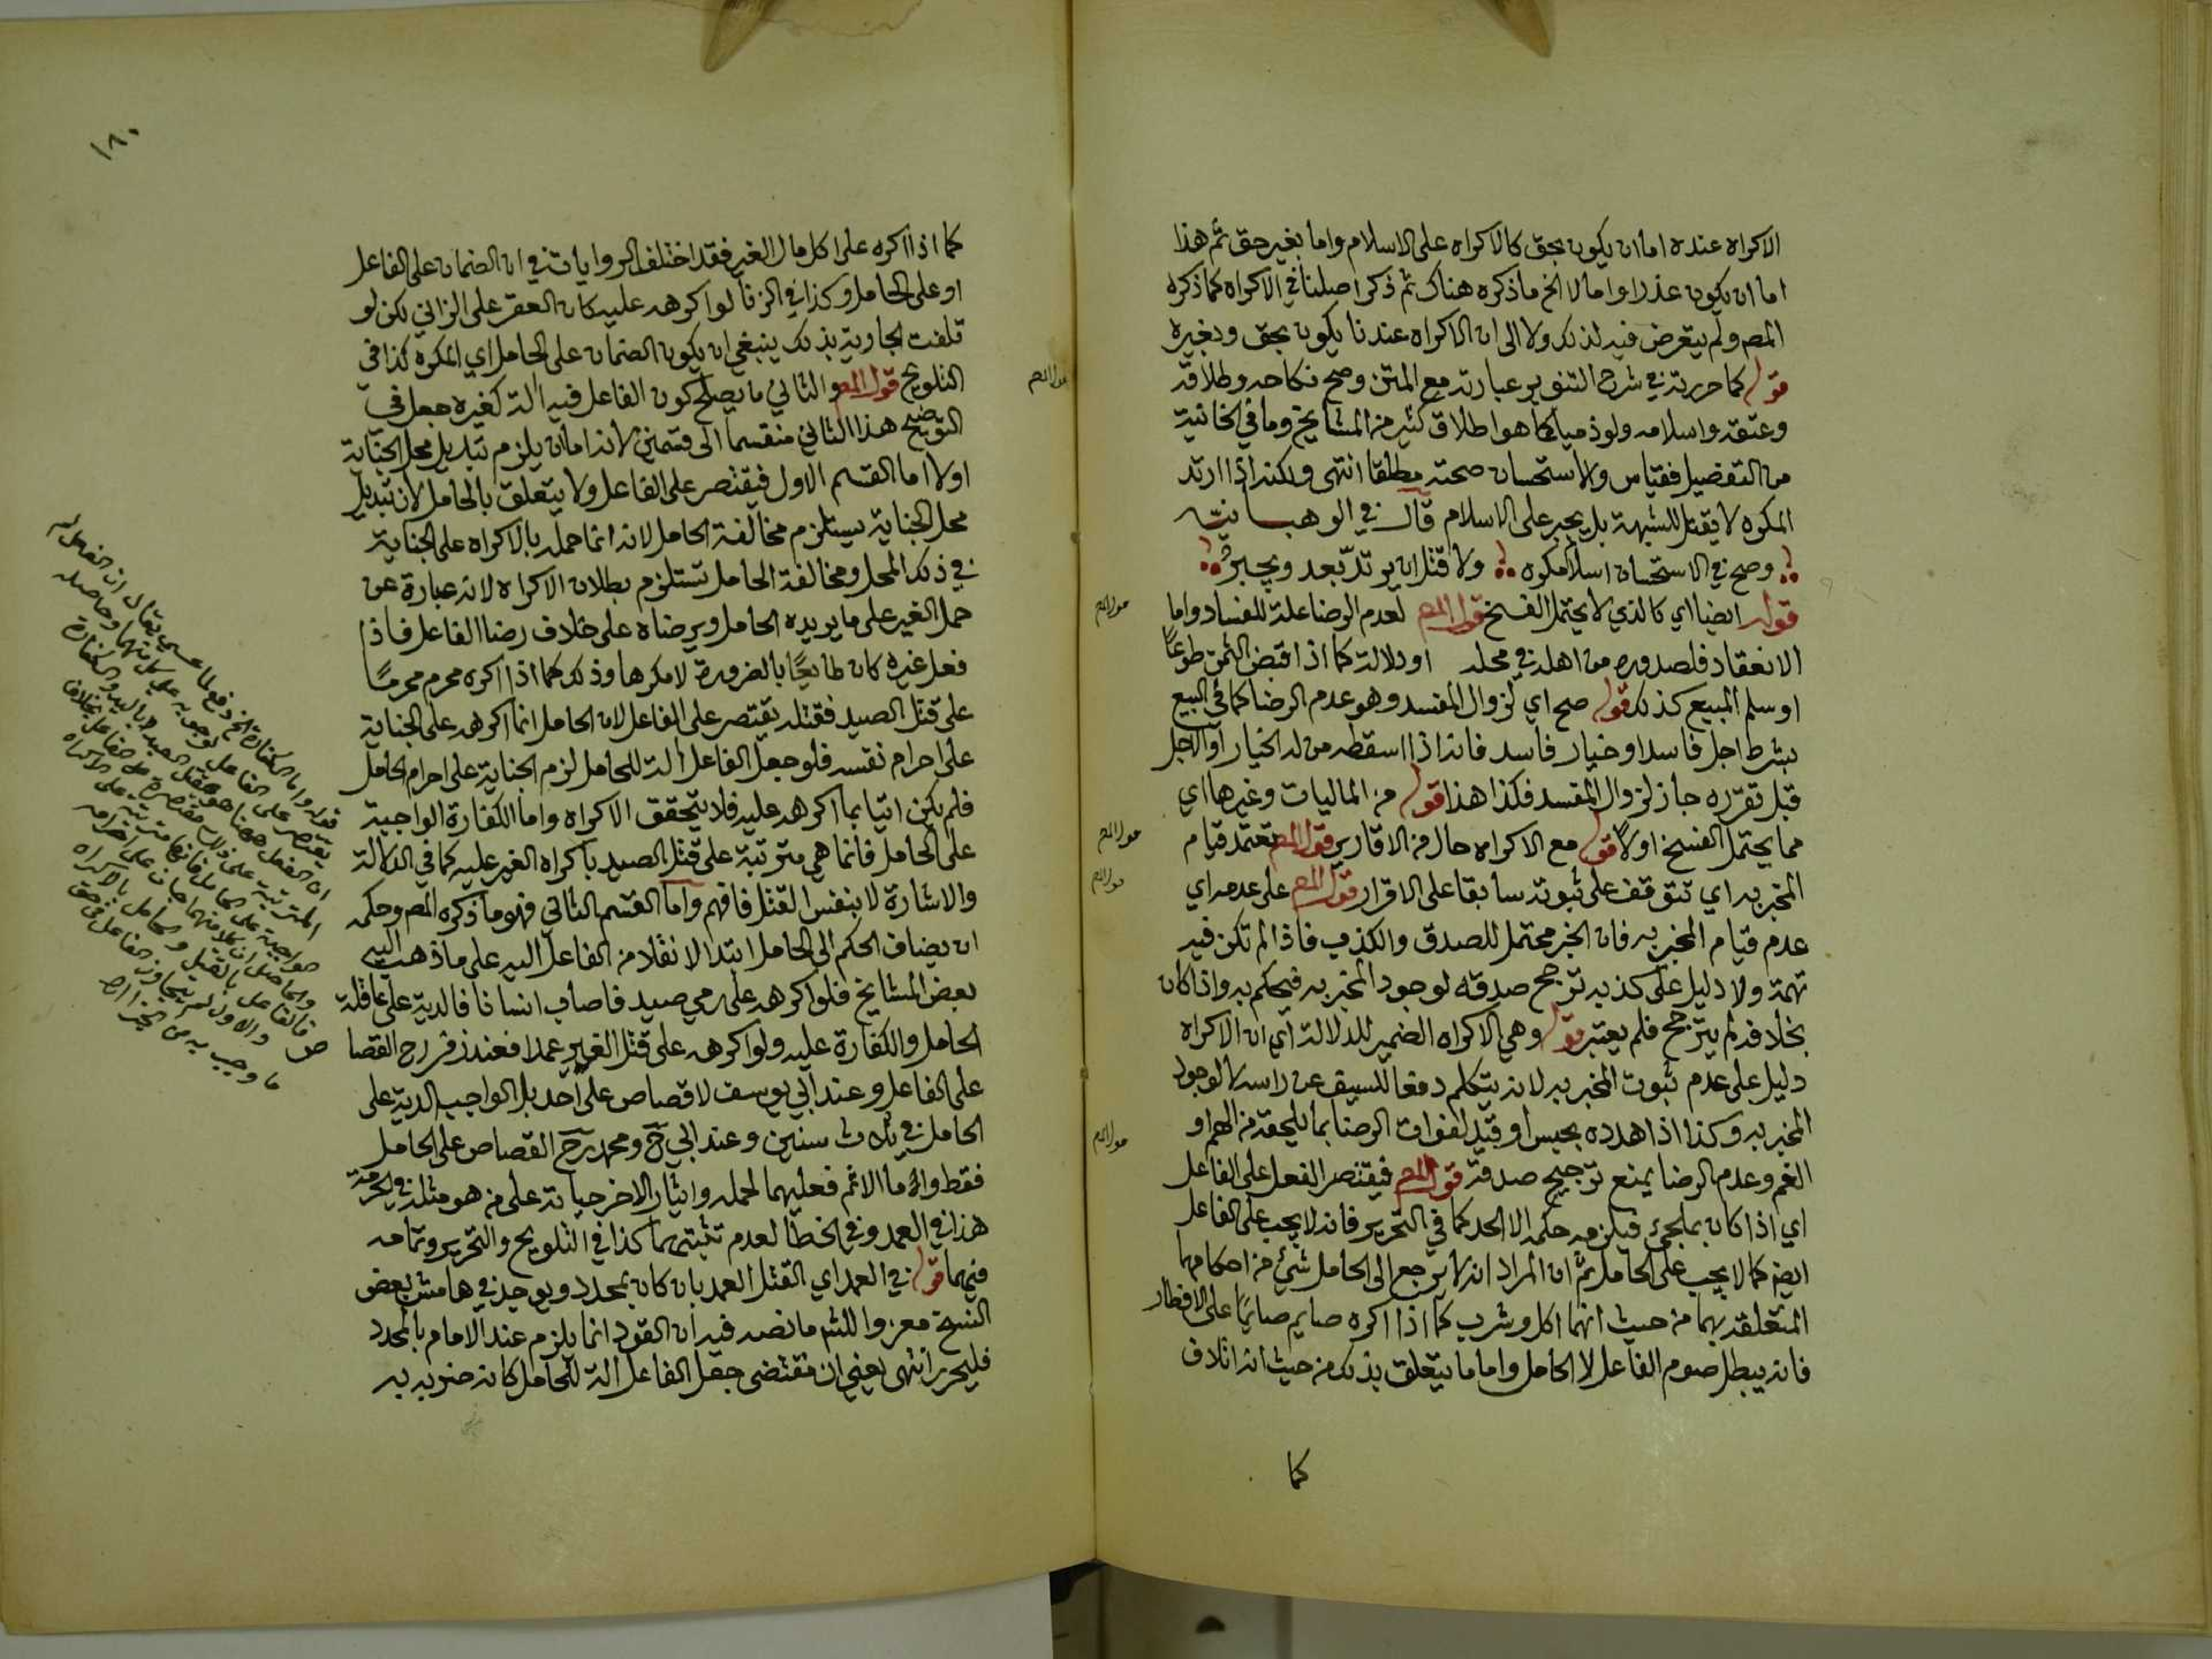 الاكراه عنده اما ان يكون بحق كالاكراه على الاسلام واما بغير حق ثم هذا
اما ان يكون عذرا واما لا الخ ما ذكره هناك ثم ذكر اصلنا في الاكراه كما ذكره
المص ولم يتعرض فيه لذلك ولا الى ان الاكراه عندنا يكون بحق وبغيره
قوله كما حررته في شرح التنوير عبارته مع المتن وصح نكاحه وطلاقه
وعتقه واسلامه ولو ذميا كما هو اطلاق كثير من المشايخ وما في الخانية
من التفصيل فقياس والاستحسان صحته مطلقا انتهى ولكنه اذا ارتد
المكره لا يقتل للشبهة بل يجبر على الاسلام قال في الوهبانية
وصح في الاستحسان اسلام مكره ولا قتل ان يرتد بعد ويجبر
قوله ايضا اي كالذي لا يحتمل الفسخ قول المص لعدم الرضا علة للفساد واما
الانعقاد فلصدوره من اهله في محله او دلالة كما اذا قبض الثمن طوعا
او سلم المبيع كذلك قوله صح اي لزوال المفسد وهو عدم الرضا كما في البيع
بشرط اجل فاسد او خيار فاسد فانه اذا اسقطه من له الخيار او الاجل
قبل تقرره جاز لزوال المفسد فكذا هذا قوله من الماليات وغيرها اي
مما يحتمل الفسخ اولا قوله مع الاكراه حال من الاقارير قول المص تعتمد قيام
المخبر به اي تتوقف على ثبوته سابقا على الاقرار قول المص على عدمه اي
عدم قيام المخبر به فان الخبر محتمل للصدق والكذب فاذا لم تكن فيه
تهمة ولا دليل على كذبه ترجح صدقه لوجود المخبر به فيحكم به واذا كان
بخلافه لم يترجح فلم يعتبر قوله وهي الاكراه الضمير للدلالة اي ان الاكراه
دليل على عدم ثبوت المخبر به لانه يتكلم دفعا للسيف عن راسه لا لوجود
المخبر به وكذا اذا هدده بحبس او قيد لفوات الرضا بما يلحقه من الهم او
الغم وعدم الرضا يمنع ترجيح صدقه قول المص فيقتصر الفعل على الفاعل
اي اذا كان بملجئ فيلزمه حكمه الا الحد كما في التحرير فانه لا يجب على الفاعل
ايض كما لا يجب على الحامل ثم ان المراد انه لا يرجع الى الحامل شئ من احكامها
المتعلقة بهما من حيث انهما اكل وشرب كما اذا اكره صايم صايما على الافطار
فانه يبطل صوم الفاعل لا الحامل واما ما يتعلق بذلك من حيث انه اتلاف
كما
١٨٠
كما اذا اكره على اكل مال الغير فقد اختلف الروايات في ان الضمان على الفاعل
او على الحامل وكذا في الزنا لو اكره عليه كان العقر على الزاني لكن لو
تلفت الجارية بذلك ينبغي ان يكون الضمان على الحامل اي المكره كذا في
التلويح قول المص والثاني ما يصلح كون الفاعل فيه آلة كغيره جعل في
التوضيح هذا الثاني منقسما الى قسمين لانه اما ان يلزم تبديل محل الجناية
اولا اما القسم الاول فيقتصر على الفاعل ولا يتعلق بالحامل لان تبديل
محل الجناية يستلزم مخالفة الحامل لانه انما حمله بالاكراه على الجناية
في ذلك المحل ومخالفة الحامل تستلزم بطلان الاكراه لانه عبارة عن
حمل الغير على ما يريده الحامل ويرضاه على خلاف رضا الفاعل فاذا
فعل غيره كان طايعا بالضرورة لا مكرها وذلك كما اذا اكره محرم محرما
على قتل الصيد فقتله يقتصر على الفاعل لان الحامل انما اكرهه على الجناية
على احرام نفسه فلو جعل الفاعل آلة للحامل لزم الجناية على احرام الحامل
فلم يكن اتيا بما اكرهه عليه فلا يتحقق الاكراه واما الكفارة الواجبة
على الحامل فانما هي مترتبة على قتل الصيد باكراه الغير عليه كما في الدلالة
والاشارة لا بنفس القتل فافهم واما القسم الثاني فهو ما ذكره المص وحكمه
ان يضاف الحكم الى الحامل ابتدا لا نقلا من الفاعل اليه على ما ذهب اليه
بعض المشايخ فلو اكرهه على رمي صيد فاصاب انسانا فالدية على عاقلة
الحامل والكفارة عليه ولو اكرهه على قتل الغير عمدا فعند زفر رح القصا
على الفاعل وعند ابي يوسف لا قصاص على احد بل الواجب الدية على
الحامل في ثلاث سنين وعند ابي ح ومحمد رح القصاص على الحامل
فقط واما الاثم فعليهما لحمله وايثار الاخر حياته على من هو مثله في الحرمة
هذا في العمد وفي الخطا لعدم تثبتهما كذا في التلويح والتحرير وتمامه
فيهما قوله في العمد اي القتل العمد بان كان بمحدد ويوجد في هامش بعض
النسخ معزوا للشه ما نصه فيه ان القود انما يلزم عند الامام بالمحدد
فليحرر انتهى يعني ان مقتضى جعل الفاعل آلة للحامل كانه ضربه به
قول المص
قول المص
قول المص
قول المص
قول المص
قوله واما الكفارة الخ دفع لما عسى يقال ان الفعل لم
يقتصر على الفاعل لوجوبه على كل منهما وحاصله
ان الفعل ههنا هو قتل الصيد باليد والكفارة
المترتبة على ذلك مقتصرة على الفاعل بخلاف
الواجبة على الحامل فانها مترتبة على الاكراه
والحاصل ان كلا منهما جان على احرامه
فالفاعل بالقتل والحامل بالاكراه
والاول لم يتجاوز الفاعل في حق
ما وجب به من الجزا اهـ